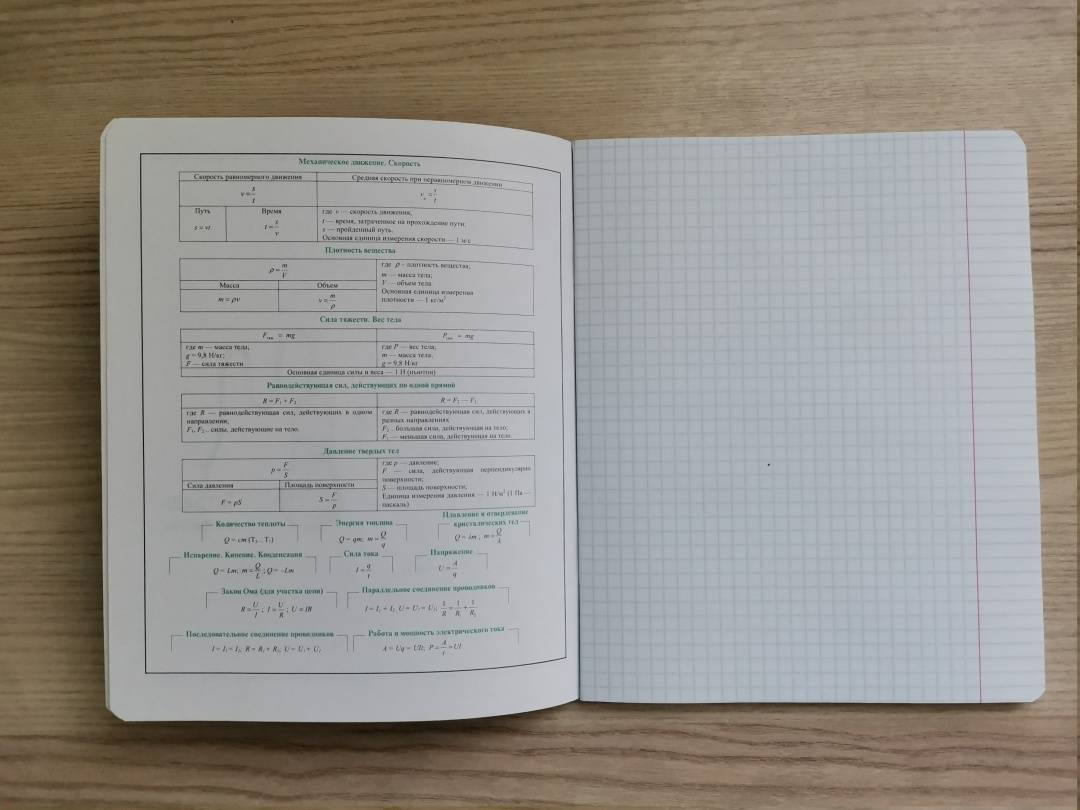 Механическое движение. Скорость
Скорость равномерного движения
Средняя скорость при неравномерном движении
v = s/t
v = s/t
Путь
Время
s = vt
t = s/v
где v — скорость движения,
t — время, затраченное на прохождение пути;
s — пройденный путь.
Основная единица измерения скорости — 1 м/с
Плотность вещества
ρ = m/V
Масса
Объем
m = ρv
v = m/ρ
где ρ - плотность вещества;
m — масса тела;
V — объем тела
Основная единица измерения
плотности — 1 кг/м³
Сила тяжести. Вес тела
Fтяж = mg
= mg
где m — масса тела;
g = 9,8 Н/кг;
F — сила тяжести
где P — вес тела;
m — масса тела.
g = 9,8 Н/кг
Основная единица силы и веса — 1 Н (ньютон)
Равнодействующая сил, действующих по одной прямой
R = F₁ + F₂
R = F₂ — F₁
где R — равнодействующая сил, действующих в одном
направлении,
F₁, F₂ .. силы, действующие на тело.
где R — равнодействующая сил, действующих в
разных направлениях
F₂ .. большая сила, действующая на тело;
F₁ — меньшая сила, действующая на тело.
Давление твердых тел
p = F/S
Сила давления
Площадь поверхности
F = pS
S = F/p
где p — давление;
F — сила, действующая перпендикулярно
поверхности;
S — площадь поверхности;
Единица измерения давления — 1 Н/м² (1 Па —
паскаль)
Количество теплоты
Q = cm (T₂ .. T₁)
Энергия топлива
Q = qm; m = Q/q
Плавление и отвердевание
кристаллических тел
Q = λm ; m = Q/λ
Испарение. Кипение. Конденсация
Q = Lm; m = Q/L ; Q = –Lm
Сила тока
I = q/t
Напряжение
U = A/q
Закон Ома (для участка цепи)
R = U/I ; I = U/R ; U = IR
Параллельное соединение проводников
I = I₁ + I₂, U = U₁ = U₂; 1/R = 1/R₁ + 1/R₂
Последовательное соединение проводников
I = I₁ = I₂, R = R₁ + R₂, U = U₁ + U₂
Работа и мощность электрического тока
A = Uq = UIt; P = A/t = UI